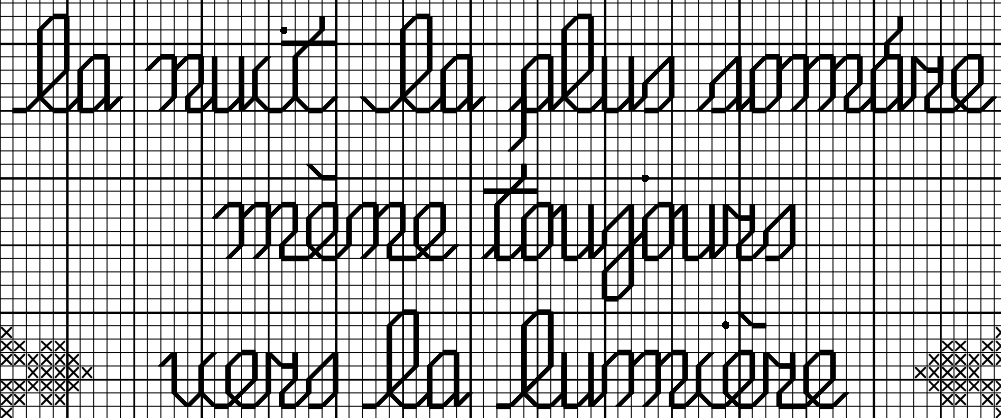 la nuit la plus sombre
mène toujours
vers la lumière